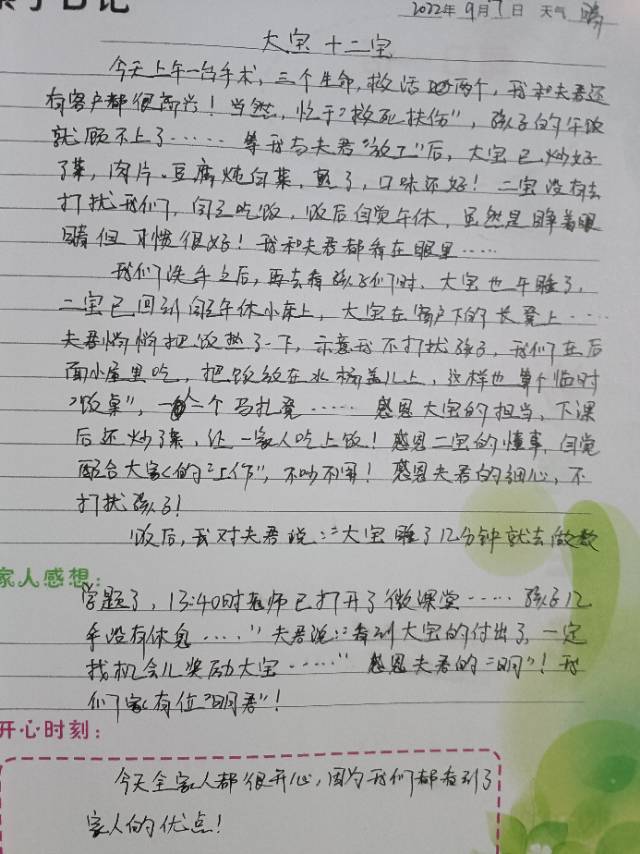 日记
2022年9月7日 天气 晴
大宝十二宝
今天上午一台手术，三个生命，救活两个，我和夫君还
有客户都很高兴！当然，忙于“救死扶伤”，孩子的午饭
就顾不上了……等我与夫君“放工”后，大宝已炒好
了菜，肉片、豆腐炖白菜，熟了，口味还好！二宝没有去
打扰我们，自己吃饭，饭后自觉午休，虽然是睁着眼
睛但习惯很好！我和夫君都看在眼里……
我们洗手之后，再去看孩子们时，大宝也午睡了，
二宝已回到自己午休小床上，大宝在窗户下的长凳上……
夫君悄悄把饭热了一下，示意我不打扰孩子，我们在后
面小屋里吃，把饭放在水桶盖儿上，这样也算个临时
“饭桌”，一人一个马扎凳……感恩大宝的担当，下课
后还炒了菜，让一家人吃上饭！感恩二宝的懂事，自觉
配合大家的“工作”，不吵不闹！感恩夫君的细心，不
打扰孩子！
饭后，我对夫君说：“大宝睡了几分钟就去做数
家人感想：
学题了，13:40时老师已打开了微课堂……孩子几
乎没有休息……”夫君说：“看到大宝的付出了，一定
找机会儿奖励大宝……”感恩夫君的“明”！我
们家有位“明君”！
开心时刻：
今天全家人都很开心，因为我们都看到了
家人的优点！